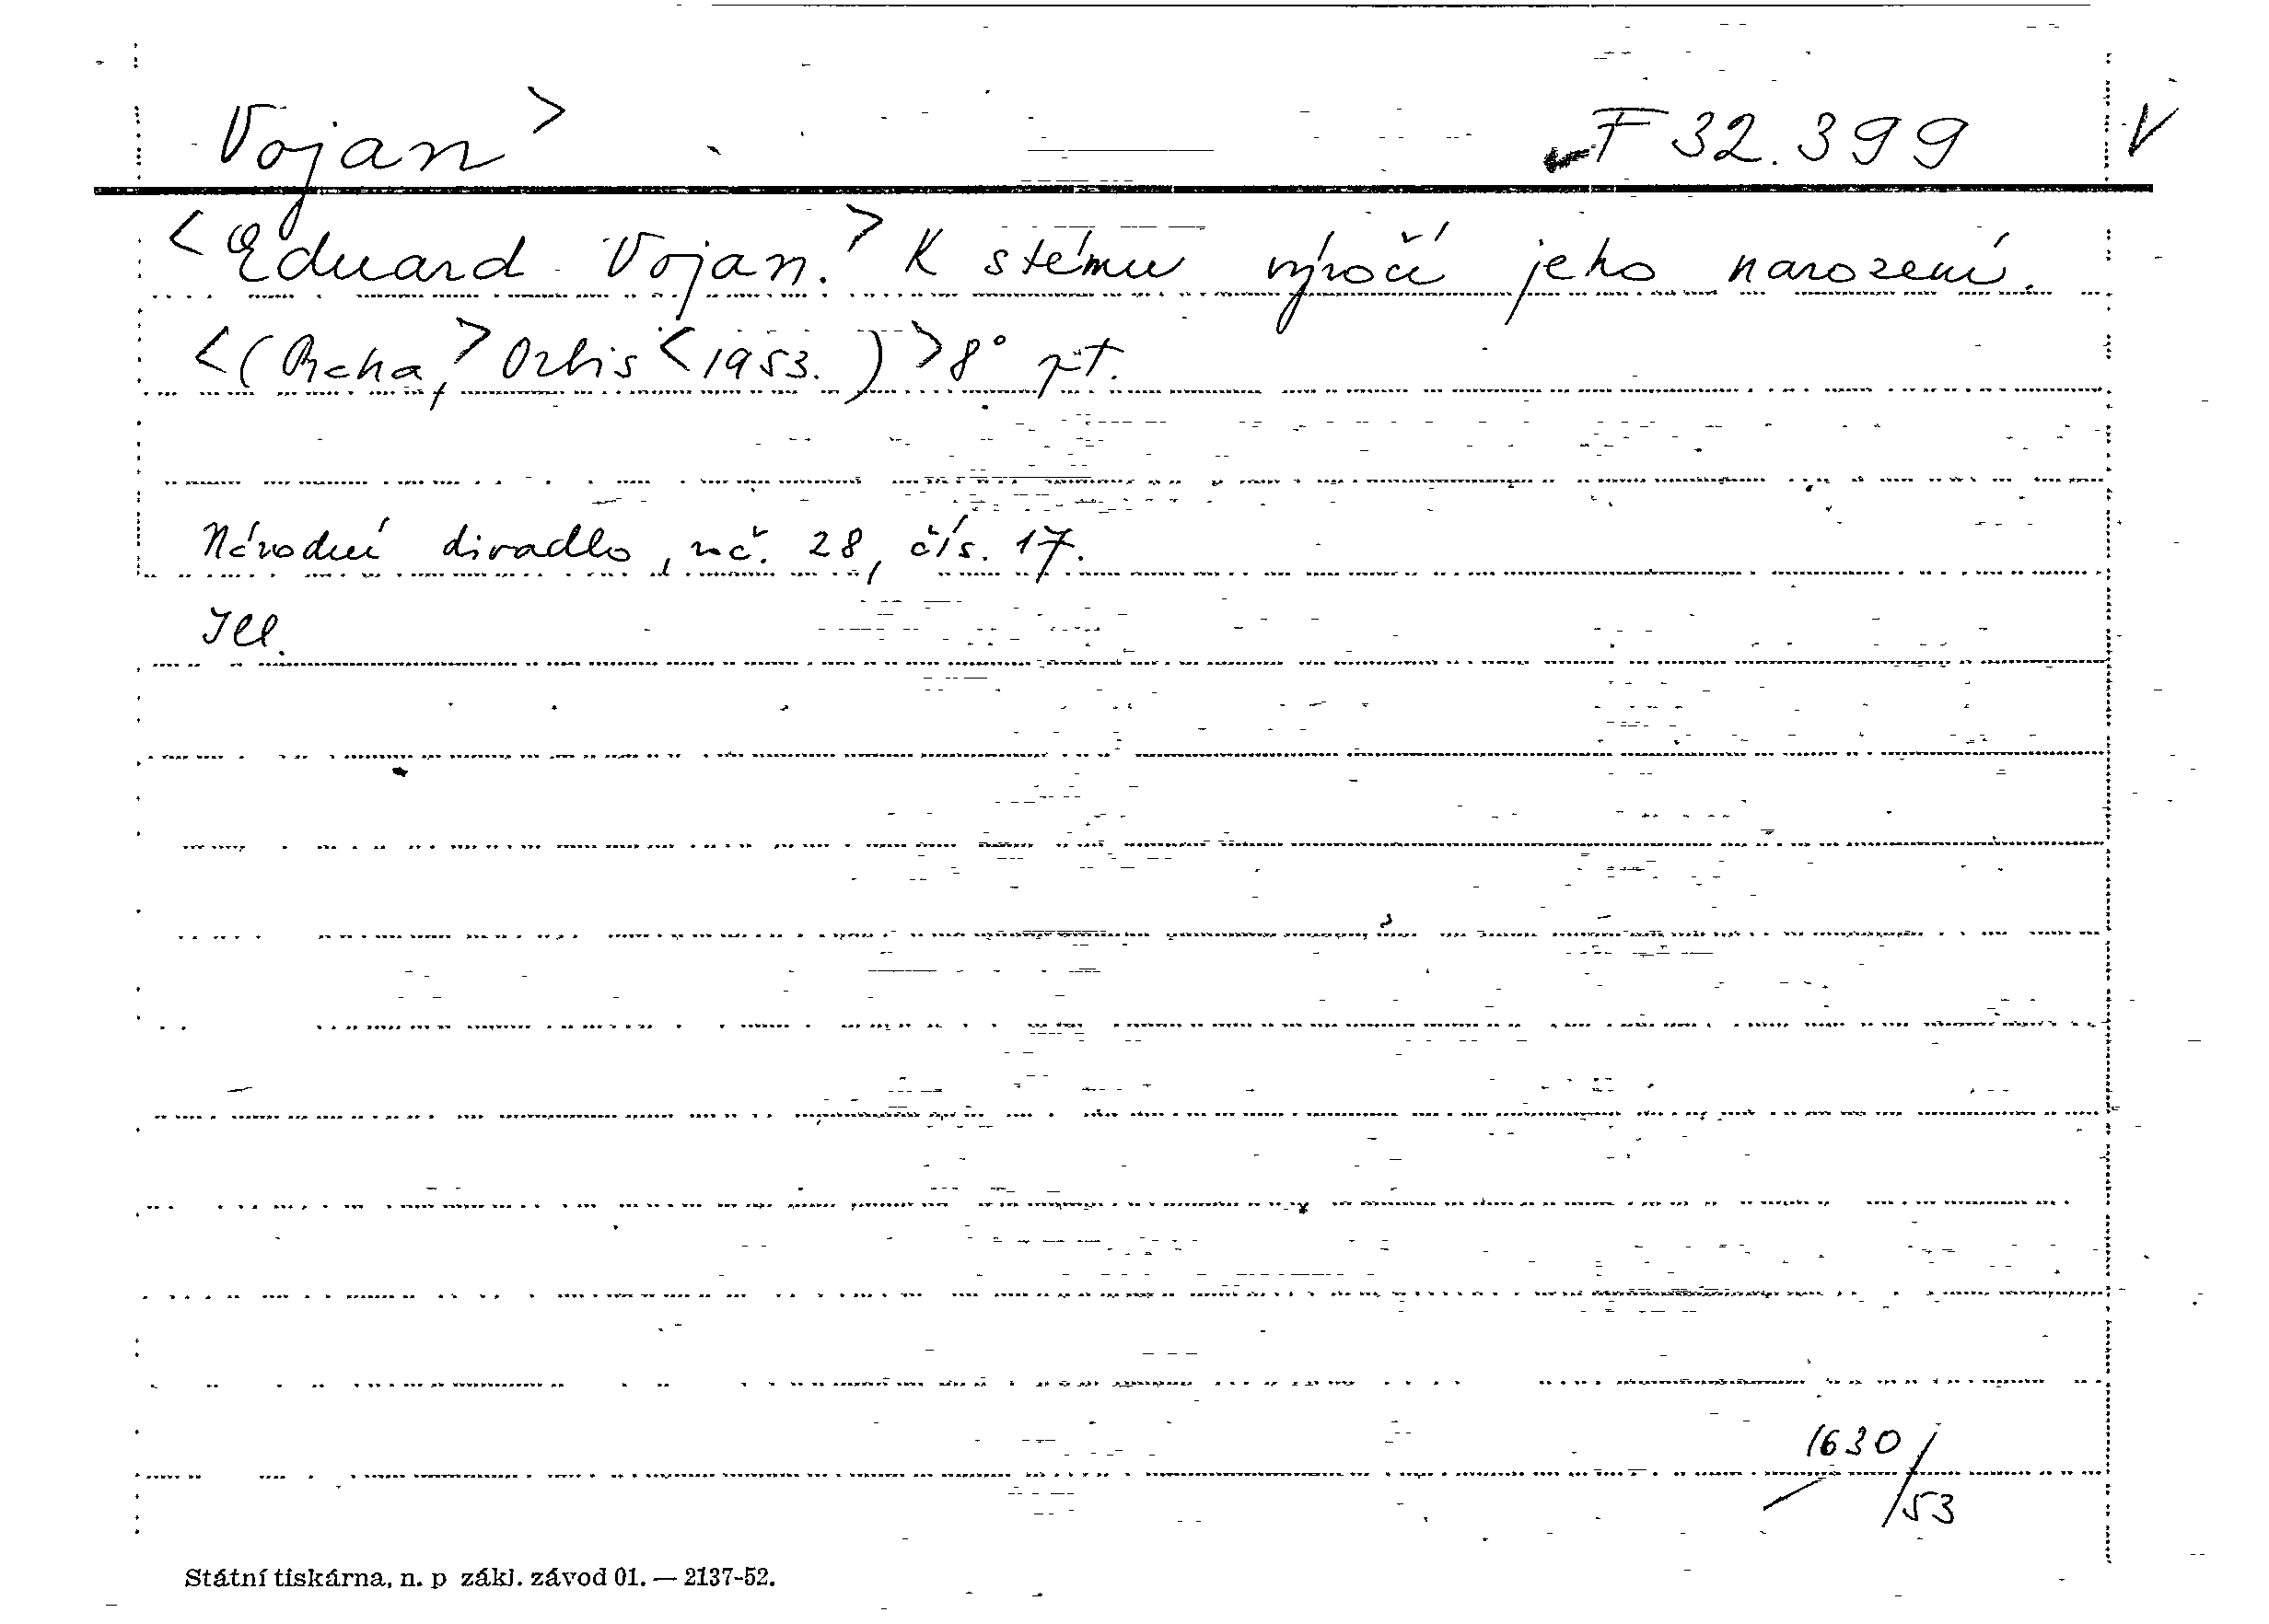 Vojan > F 32.399 V
<Eduard Vojan.> K stému výročí jeho narození.
<(Praha,> Orbis <1953.)> 8°
Národní divadlo, roč. 28, čís. 17.
Ill.
1630/53
Státní tiskárna, n. p zákl. závod 01. — 2137-52.